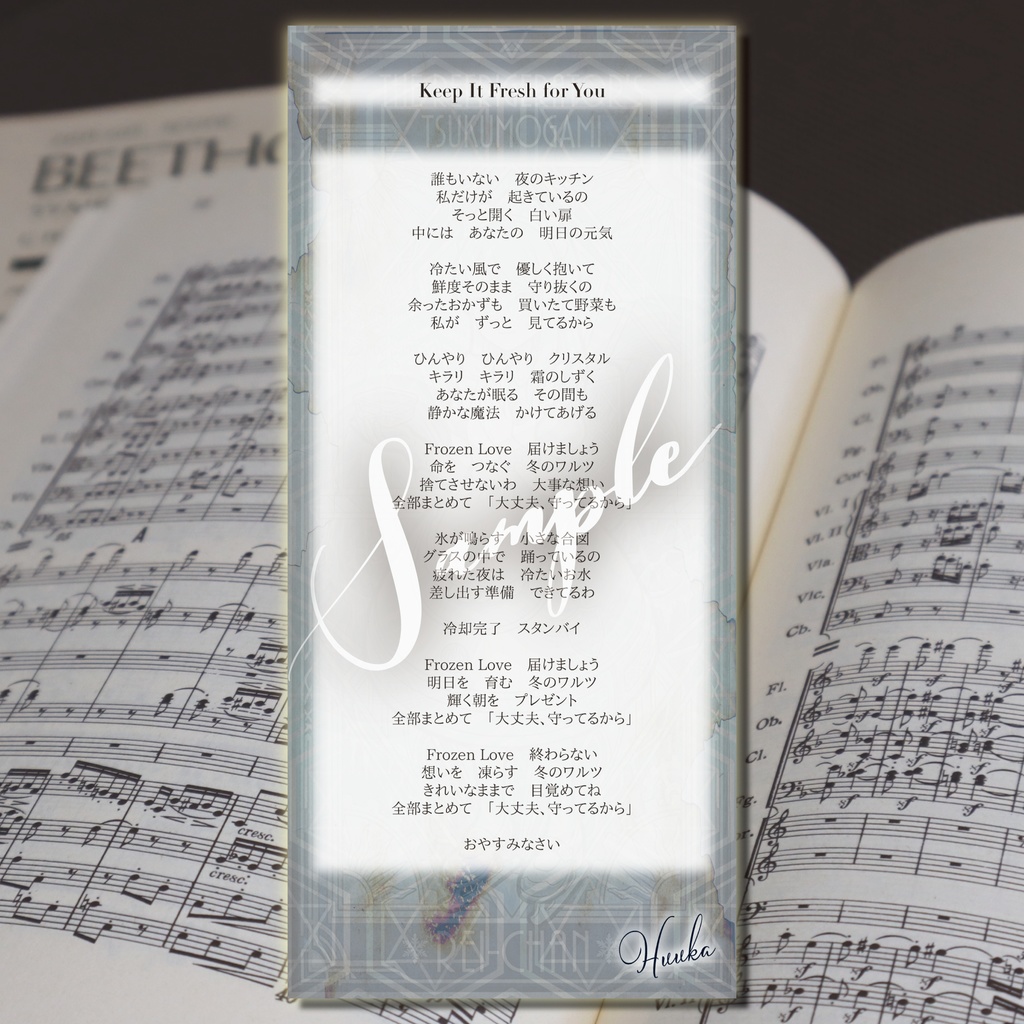 Keep It Fresh for You
TSUKUMOGAMI
誰もいない　夜のキッチン
私だけが　起きているの
そっと開く　白い扉
中には　あなたの　明日の元気
冷たい風で　優しく抱いて
鮮度そのまま　守り抜くの
余ったおかずも　買いたて野菜も
私が　ずっと　見てるから
ひんやり　ひんやり　クリスタル
キラリ　キラリ　霜のしずく
あなたが眠る　その間も
静かな魔法　かけてあげる
Frozen Love　届けましょう
命を　つなぐ　冬のワルツ
捨てさせないわ　大事な想い
全部まとめて　「大丈夫、守ってるから」
氷が鳴らす　小さな合図
グラスの中で　踊っているの
疲れた夜は　冷たいお水
差し出す準備　できてるわ
冷却完了　スタンバイ
Frozen Love　届けましょう
明日を　育む　冬のワルツ
輝く朝を　プレゼント
全部まとめて　「大丈夫、守ってるから」
Frozen Love　終わらない
想いを　凍らす　冬のワルツ
きれいなままで　目覚めてね
全部まとめて　「大丈夫、守ってるから」
おやすみなさい
Sample
Huuka
cresc.
cresc.
A
Fl.
Ob.
Cl.
Vl. I
Vl. II
Vla.
Vlc.
Cb.
Fl.
Ob.
Cl.